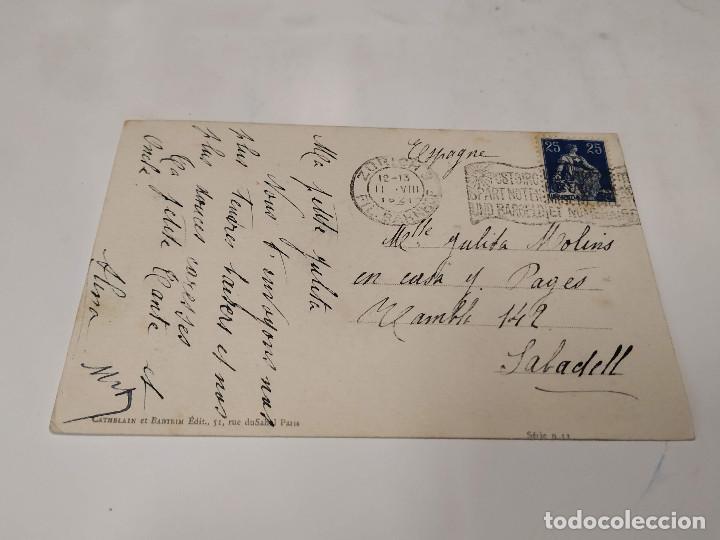 Espagne
ZÜRICH
12-13
11. VIII
1921
25 25
POSTSCHECK
SPART NOTEN
UND BARGELD
Mlle Julita Molins
en casa J. Pagés
Rambla 142
Sabadell
Ma petite Julita
Nous t'envoyons nos
plus tendres baisers et nos
plus douces caresses
Ta petite Tante et
Oncle
Alina
CATHELAIN ET BANTEIM Édit., 51, rue du Paris
Série n.
todocoleccion.net